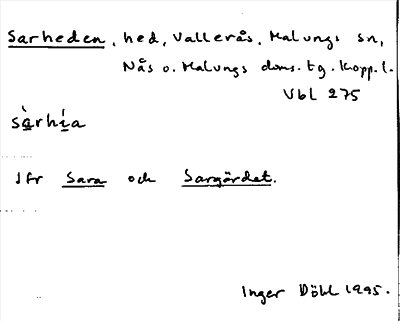 Sarheden, hed, Vallerås, Malungs sn,
Nås o. Malungs doms. tg. Kopp. l.
Vbl 275
sàrhía
Jfr Sara och Sargärdet.
Inger Döhl 1995.